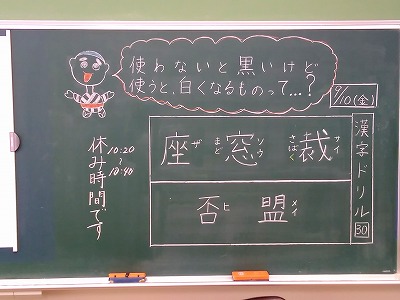 使わないと黒いけど
使うと、白くなるものって…?
9/10(金)
漢字ドリル30
裁 サイ さばく
窓 ソウ まど
座 ザ
盟 メイ
否 ヒ
10:20
～
10:40
休み時間です